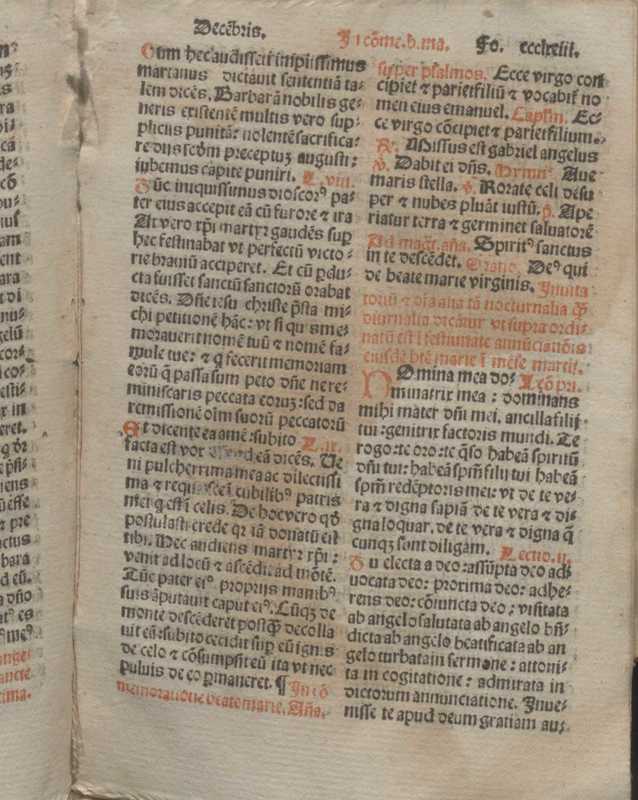 Decēbris.
In cōme.b.ma.
Fo. ccclxiii.
Cum hec audisset impiissimus
martianus dictauit sententiā ta-
lem dicēs. Barbarā nobilis ge-
neris existentē multis vero sup-
pliciis punitā: nolentē sacrifica-
re diis scd'm preceptuʒ augusti:
iubemus capite puniri. L.viii.
Tūc iniquissimus dioscorꝰ pa-
ter eius accepit eā cū furore ⁊ ira
At vero xp̄i martyr gaudēs suꝑ
hec festinabat vt perfectū victo-
rie brauiū acciperet. Et cū ꝑdu-
cta fuisset sanctū sanctorū orabat
dicēs. Dn̄e iesu christe p̄sta mi-
chi petitionē hāc: vt si quis me-
morauerit nomē tuū ⁊ nomē fa-
mule tue: ⁊ q̄ fecerit memoriam
eorū q̄ passa sum peto dn̄e ne re-
miniscaris peccata eoruʒ: sed da
remissionē oīm suorū peccatorū
Et dicente ea amē: subito L.ix.
facta est vox ad eā dicēs. Ve
ni pulcherrima mea ac dilectissi
ma ⁊ requiesce ī cubilibꝰ patris
mei q̄ est ī celis. De hoc vero qḋ
postulasti crede qꝛ iā donatū est
tibi. Hec audiens martyr xp̄i:
venit ad locū ⁊ ascēdit ad mōtē.
Tūc pater eiꝰ propriis manibꝰ
suis āputauit caput eiꝰ. Cūqʒ de
monte descēderet postq̄ʒ decolla
uit eā: subito cecidit suꝑ eū ignis
de celo ⁊ cōsumpsit eū ita vt nec
puluis de eo ꝑmaneret. ¶ In cō
memoratiōe beate marie. Aña.
super psalmos. Ecce virgo con
cipiet ⁊ pariet filiū ⁊ vocabiť no
men eius emanuel. Capľm. Ec-
ce virgo cōcipiet ⁊ pariet filium.
℟. Missus est gabriel angelus
℣. Dabit ei dn̄s. Hymnꝰ. Aue
maris stella. ℣. Rorate celi desu
per ⁊ nubes pluāt iustū. ꝶ. Ape
riatur terra ⁊ germinet saluatorē
Ad mag̃t. añā. Spiritꝰ sanctus
in te descēdet. Oratio. Deꝰ qui
de beate marie virginis. Inuita
toriū ⁊ oīa alia tā nocturnalia q̄ʒ
diurnalia dicātur vt supra ordi
natū est ī festiuitate annūciatiōis
eiusdē btē marie ī mēse martii.
Domina mea do- Lcō pri.
minatrix mea: dominans
mihi mater dn̄i mei. ancilla filii
tui: genitrix factoris mundi. Te
rogo: te oro: te q̄so habeā spiritū
dn̄i tui: habeā spm̄ filii tui habeā
spm̄ redēptoris mei: vt de te ve-
ra ⁊ digna sapiā de te vera ⁊ di-
gna loquar. de te vera ⁊ digna q̄
cunqʒ sunt diligām. Lectio.ii.
Tu electa a deo: assūpta deo ad-
uocata deo: proxima deo: adhe-
rens deo: cōiuncta deo: visitata
ab angelo salutata ab angelo bn̄-
dicta ab angelo beatificata ab an
gelo turbata in sermone: attoni-
ta in cogitatione: admirata in
dictorum annunciatione. Inue-
nisse te apud deum gratiam au-